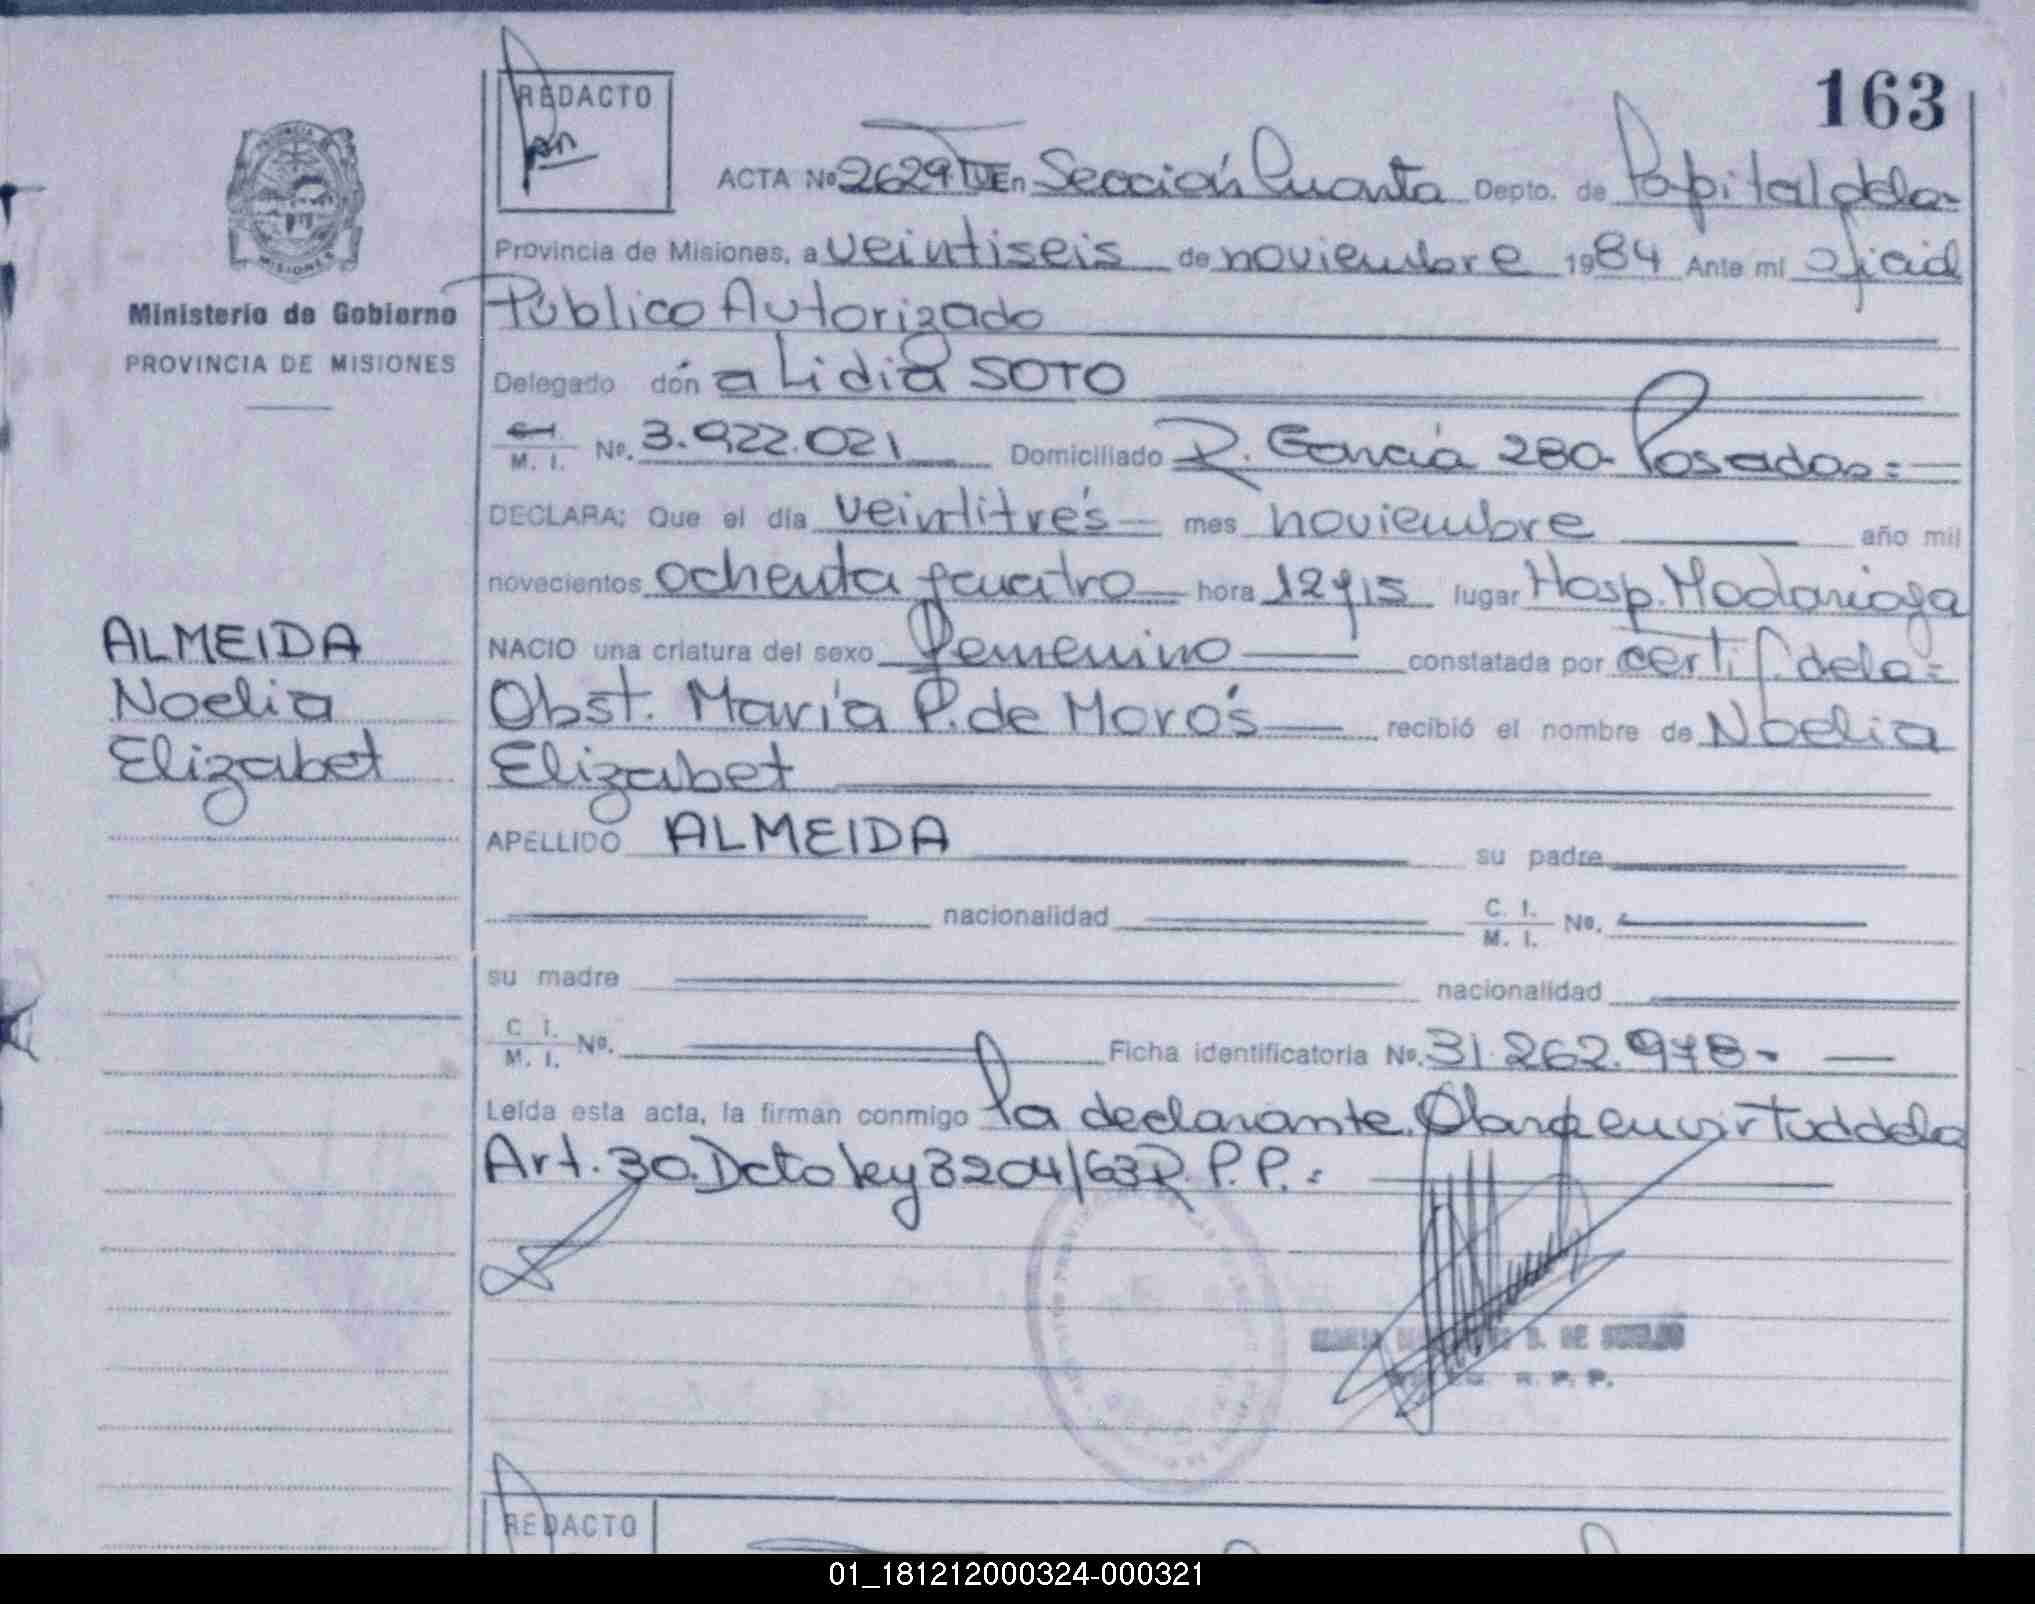 163
REDACTO
ACTA Nº 2629 TVE En Sección Cuarta Depto. de Capital de la-
Provincia de Misiones, a veintiseis de noviembre 1984 Ante mi oficial
Público Autorizado
Ministerio de Gobierno
PROVINCIA DE MISIONES
Delegado don a Lidia SOTO
C. I. / M. I. Nº. 3.922.021 Domiciliado R. García 280- Posadas=
DECLARA: Que el día veintitrés mes noviembre año mil
novecientos ochenta y cuatro hora 12 y 15 lugar Hosp. Madariaga
ALMEIDA
Noelia
Elizabet
NACIO una criatura del sexo Femenino constatada por certif. de la=
Obst. María P. de Morós recibió el nombre de Noelia
Elizabet
APELLIDO ALMEIDA su padre
nacionalidad C. I. / M. I. Nº.
su madre nacionalidad
C. I. / M. I. Nº. Ficha identificatoria Nº. 31.262.978-
Leída esta acta, la firman conmigo la declarante. en virtud de la
Art. 30. Dcto ley 3204/63 R. P. P.=
S. DE
R. P. P.
REDACTO
01_181212000324-000321